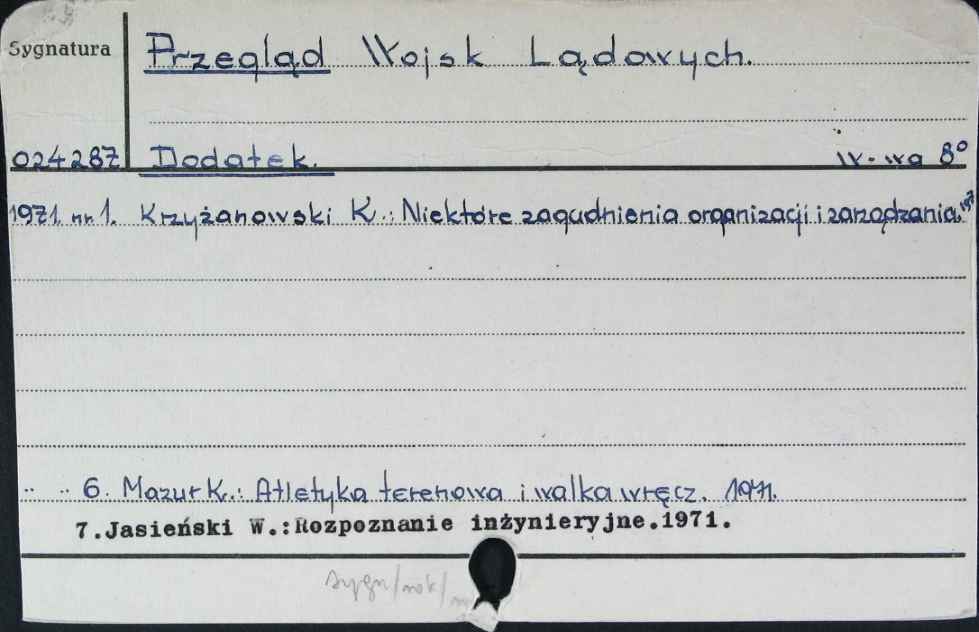 Sygnatura
Przegląd Wojsk Lądowych.
024287 Dodatek. W-wa 8°
1971. nr 1. Krzyżanowski K.: Niektóre zagadnienia organizacji i zarządzania. 1971
" " 6. Mazur K.: Atletyka terenowa i walka wręcz. 1971.
7.Jasieński W.:Rozpoznanie inżynieryjne.1971.
sygn/rok/